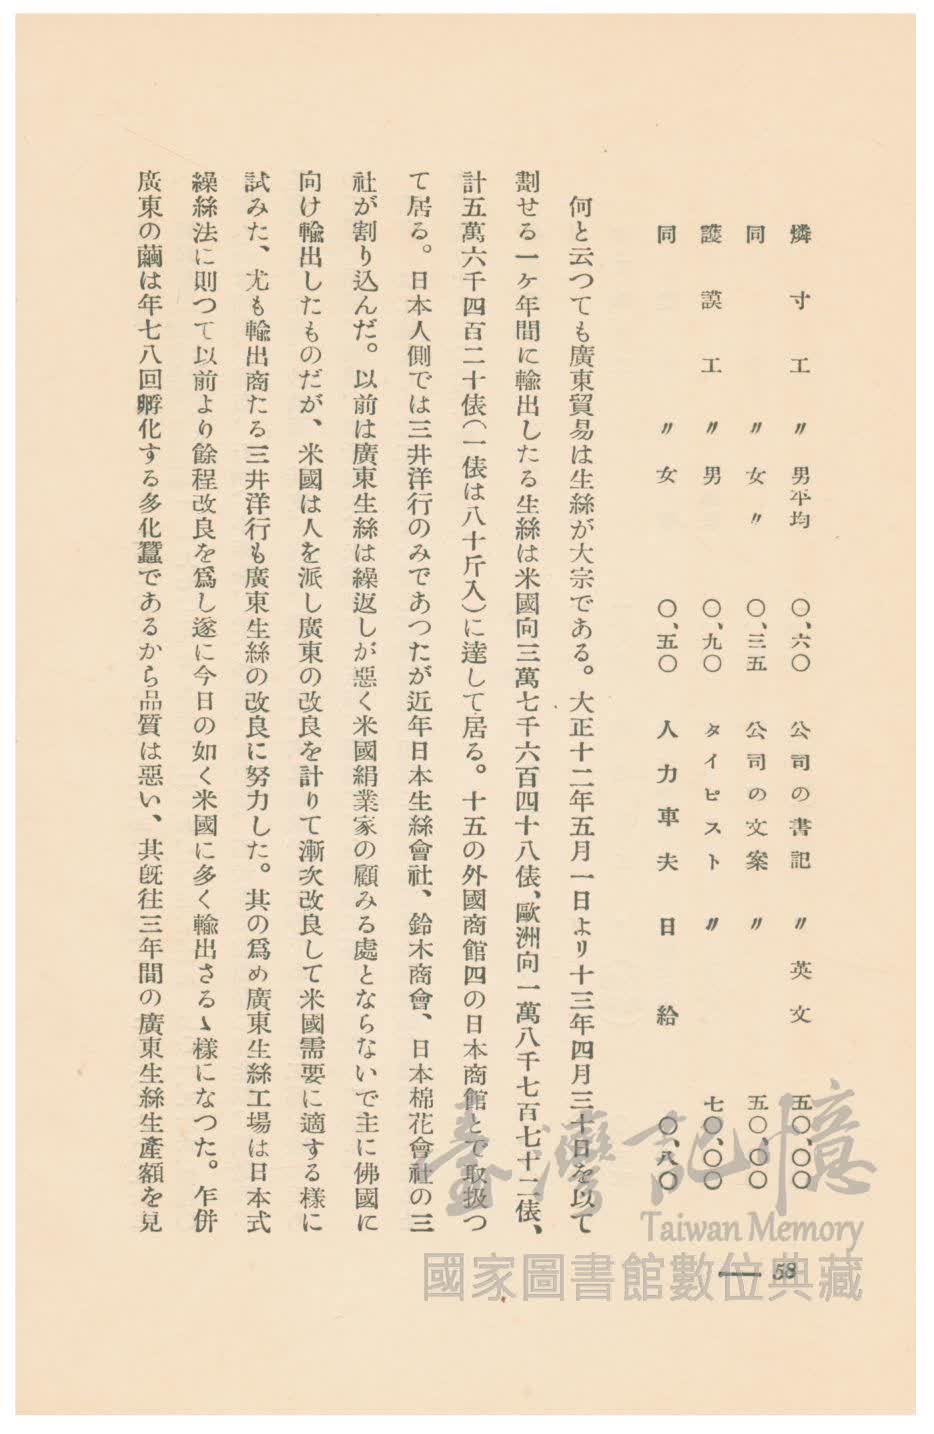 燐寸工 〃 男平均 〇、六〇 公司の書記 〃 英文 五〇、〇〇
同 〃 女 〃 〇、三五 公司の文案 〃 五〇、〇〇
護謨工 〃 男 〇、九〇 タイピスト 〃 七〇、〇〇
同 〃 女 〇、五〇 人力車夫 日給 〇、八〇
何と云つても廣東貿易は生絲が大宗である。大正十二年五月一日より十三年四月三十日を以て
劃せる一ヶ年間に輸出したる生絲は米國向三萬七千六百四十八俵、歐洲向一萬八千七百七十二俵、
計五萬六千四百二十俵(一俵は八十斤入)に達して居る。十五の外國商館四の日本商館とで取扱つ
て居る。日本人側では三井洋行のみであつたが近年日本生絲會社、鈴木商會、日本棉花會社の三
社が割り込んだ。以前は廣東生絲は繰返しが惡く米國絹業家の顧みる處とならないで主に佛國に
向け輸出したものだが、米國は人を派し廣東の改良を計りて漸次改良して米國需要に適する樣に
試みた、尤も輸出商たる三井洋行も廣東生絲の改良に努力した。其の爲め廣東生絲工場は日本式
繰絲法に則つて以前より餘程改良を爲し遂に今日の如く米國に多く輸出さるゝ樣になつた。乍併
廣東の繭は年七八回孵化する多化蠶であるから品質は惡い、其旣往三年間の廣東生絲生產額を見
58
臺灣記憶
Taiwan Memory
國家圖書館數位典藏